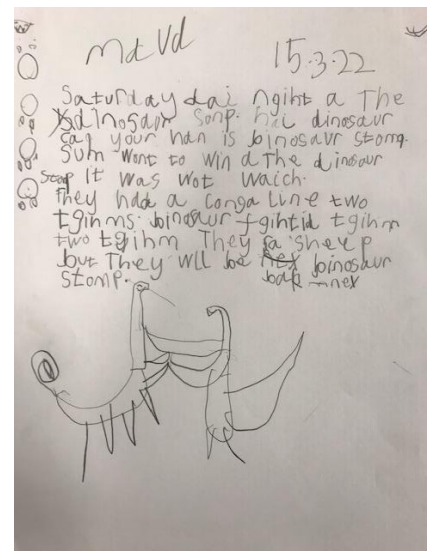 Md Vd 15.3.22
Saturday dai ngiht a The
dinosaur Sonp. hai dinosaur
can your han is binosaur stomp.
Sum wont to win d The dinosaur
Stop It was wot waich.
They hda a conga Line two
tgihms. binosaur fgihtid tgihm
two tgihm They sa sheep
but They wll be binosaur
stomp. bak nex